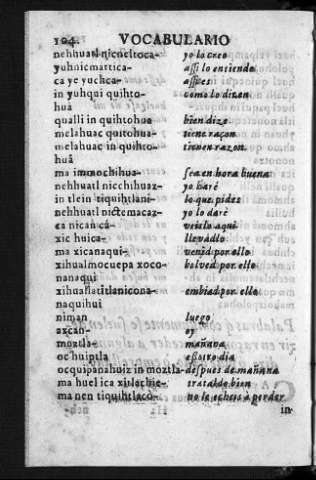 104. VOCABULARIO
nehhuatl nicneltoca- yo lo creo
yuhnicmattica- assi lo entiendo
ca ye yuchca- assi es
in yuhqui quihto- como lo dizen
hua
qualli in quihtohua bien dize
melahuac quitohua- tiene raçon
melahuac in quihto- tienen razon.
huâ
ma immochihua- sea en hora buena
nehhuatl nicchihuaz- yo haré
in tlein tiquihtlani- lo que pides
nehhuatl nictemacaz- yo lo daré
ca nican cá- veislo aqui
xic huica- llevadlo
ma xicanaqui- venid por ello
xihualmocuepa xoco- bolved por ello
nanaqui
xihuallatitlanicona- embiad por ello
naquihui
niman luego
axcan- oy
moztla- mañana
oc huiptla essotro dia
occquipanahuiz in moztla- despues de mañana
ma huel ica xitlachie- trataldo bien
ma nen tiquihtlaco- no lo echeis à perder
in